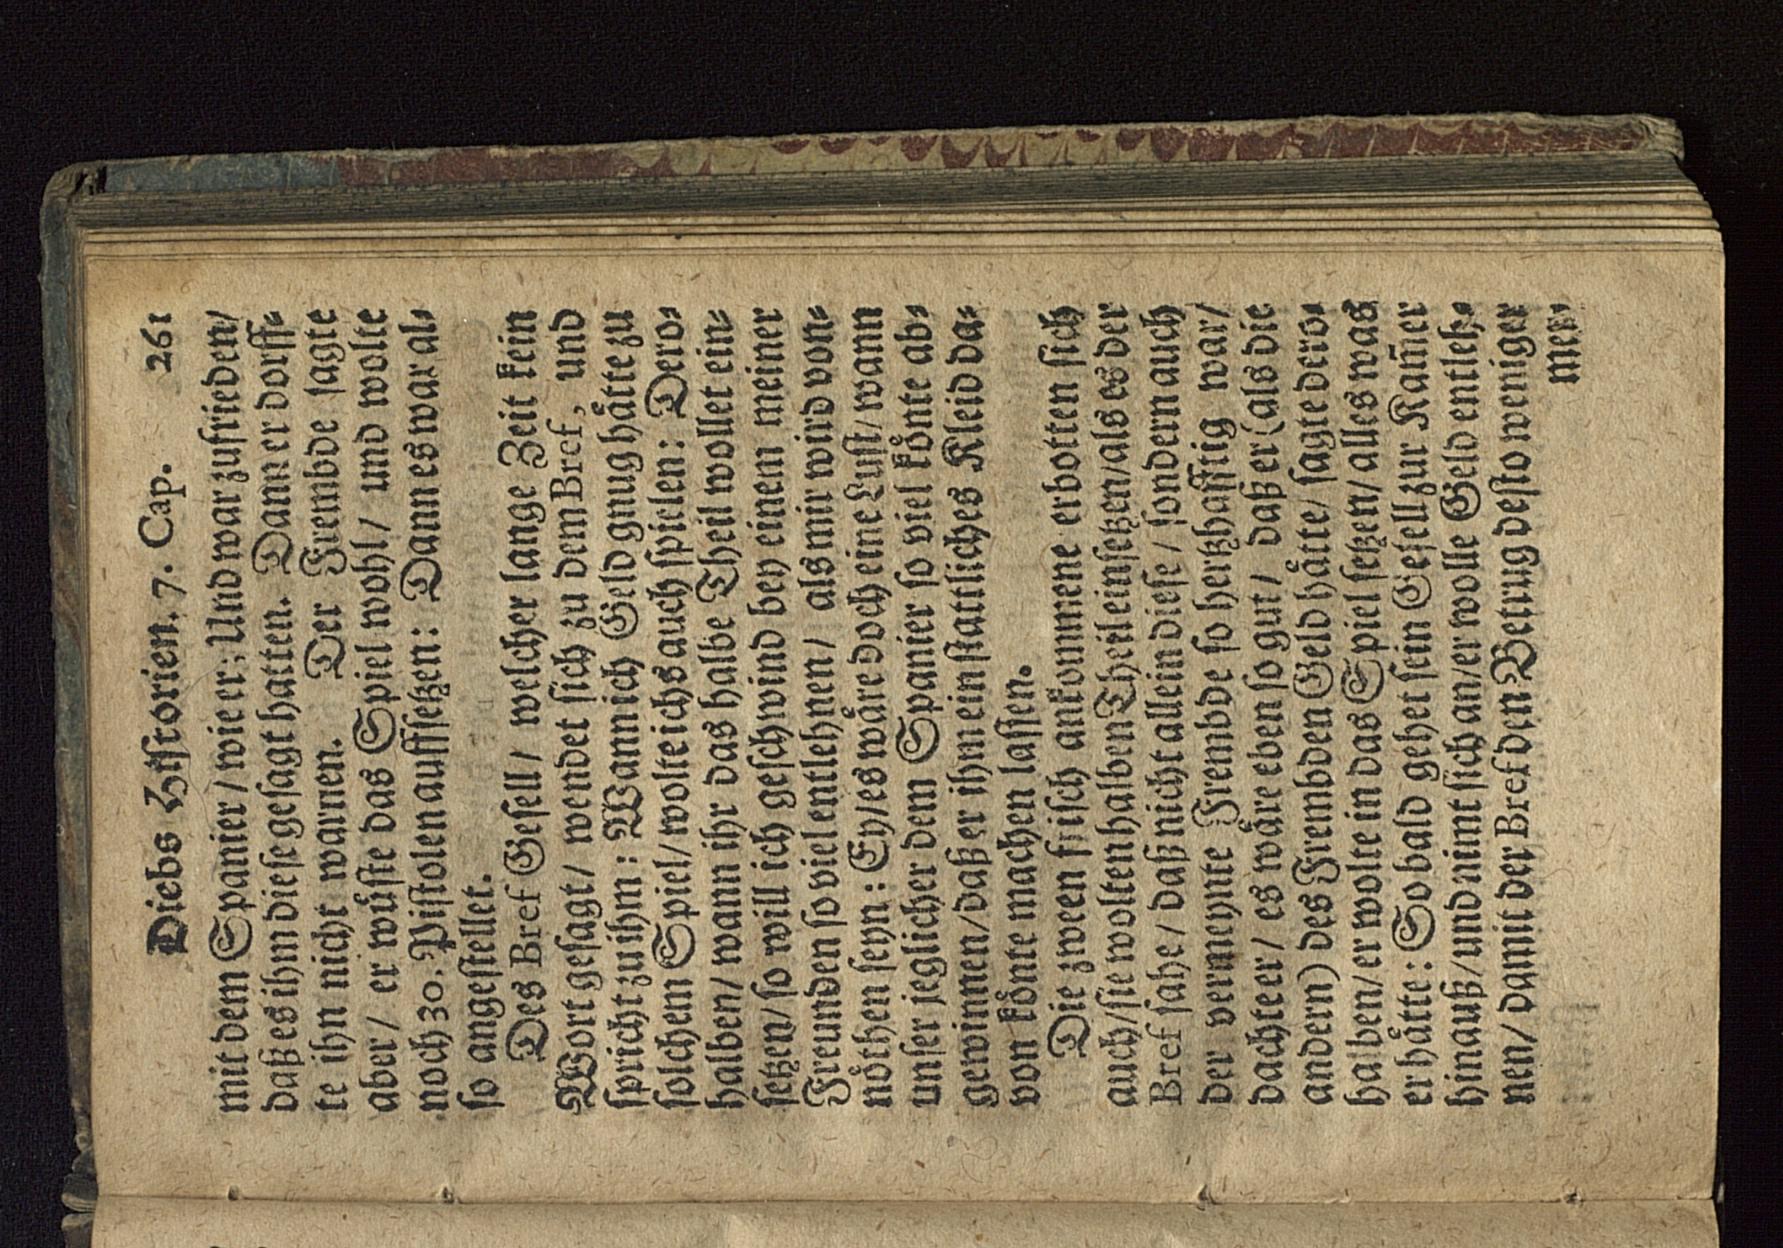 Diebs Historien. 7. Cap. 261
mit dem Spanier / wie er: Und war zufrieden/
daß es ihm diese gesagt hatten. Dann er dorff⸗
te ihn nicht warnen. Der Frembde sagte
aber / er wůste das Spiel wohl / und wolte
noch 30. Pistolen auffsetzen: Dann es war al⸗
so angestellet.
Des Bref Gesell / welcher lange Zeit kein
Wort gesagt / wendet sich zu dem Bref, und
spricht zu ihm: Wann ich Geld gnug håtte zu
solchem Spiel/ wolte ichs auch spielen: Dero⸗
halben/ wann ihr das halbe Theil wollet ein⸗
setzen/ so will ich geschwind bey einem meiner
Freunden so viel entlehnen / als mir wird von⸗
nöthen seyn: Ey/ es wåre doch eine Lust/ wann
unser jeglicher dem Spanier so viel kőnte ab⸗
gewinnen/ daß er ihm ein stattliches Kleid da⸗
von kőnte machen lassen.
Die zween frisch ankommene erbotten sich
auch/ sie wolten halben Theil einsetzen/ als es der
Bref sahe / daß nicht allein diese / sondern auch
der vermeynte Frembde so hertzhafftig war/
dachte er / es wåre eben so gut / daß er (als die
andern) des Frembden Geld håtte/ sagte dero⸗
halben/ er wolte in das Spiel setzen/ alles was
er håtte: So bald gehet sein Gesell zur Kam̃er
hinauß/ und nimt sich an/ er wolle Geld entleh⸗
nen/ damit der Bref den Betrug desto weniger
mer⸗